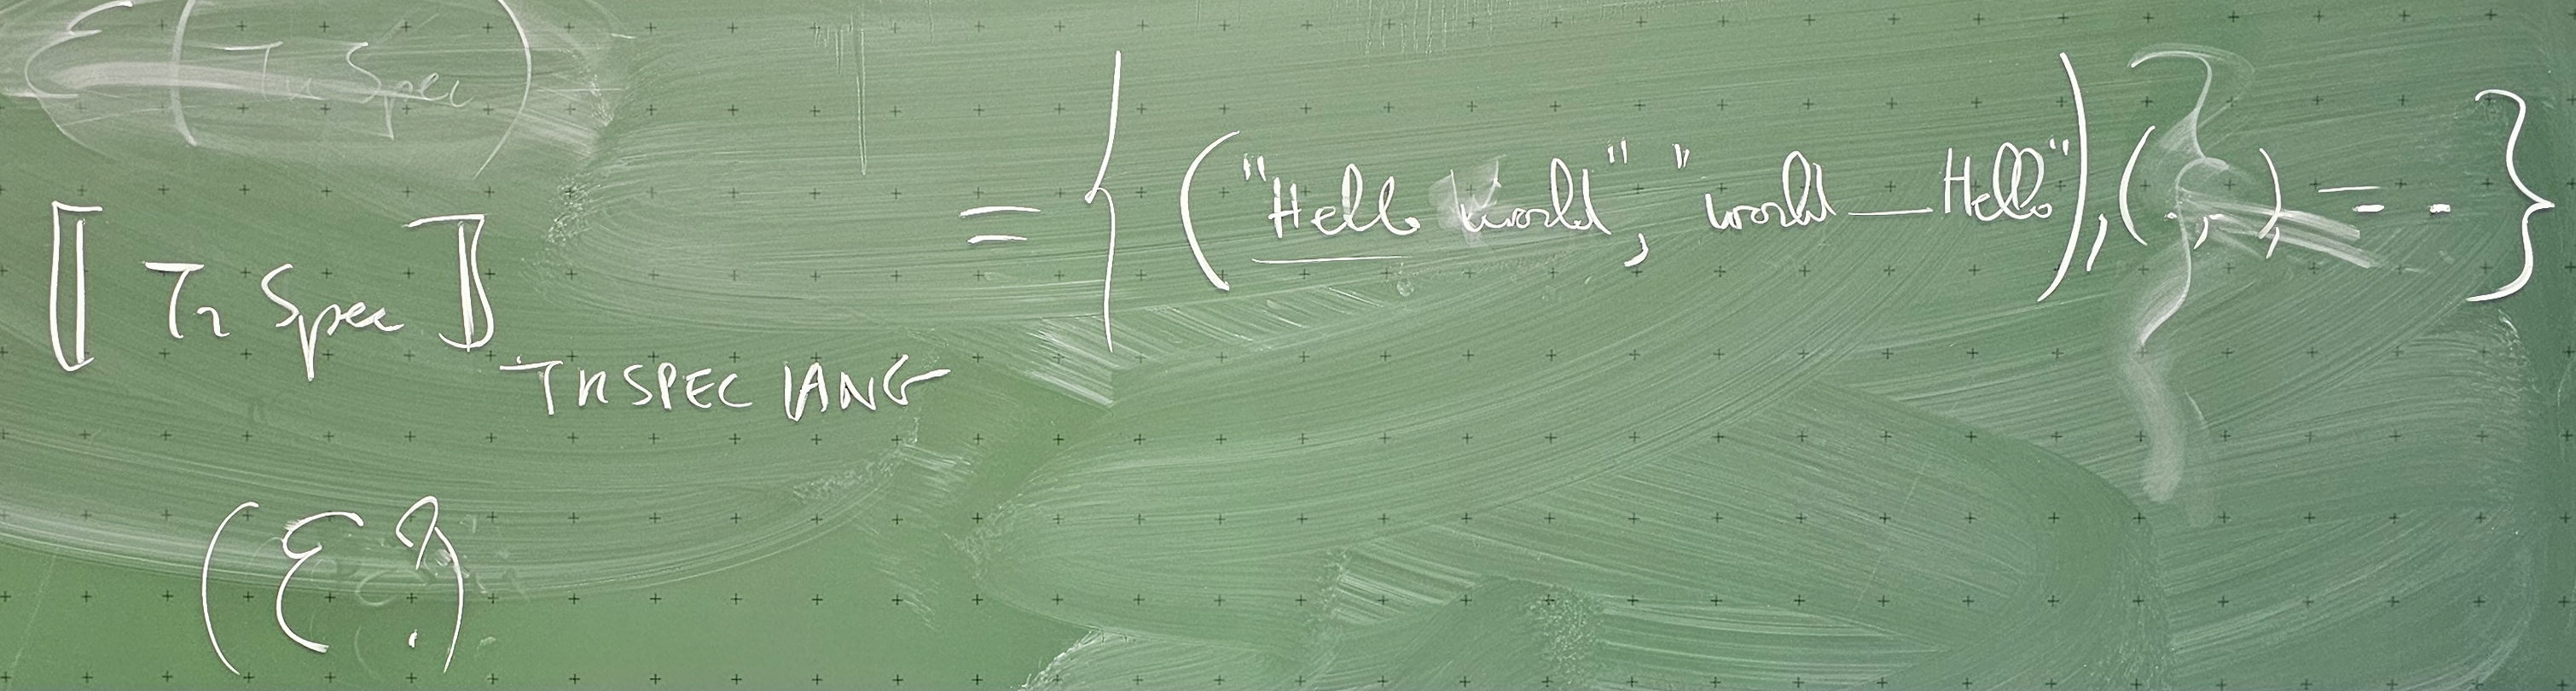 (Tr Spec)
⟦ Tr Spec ⟧ TRSPEC LANG = { ("Hello world", "world — Hello"), (·,·), — – - }
(ε?)